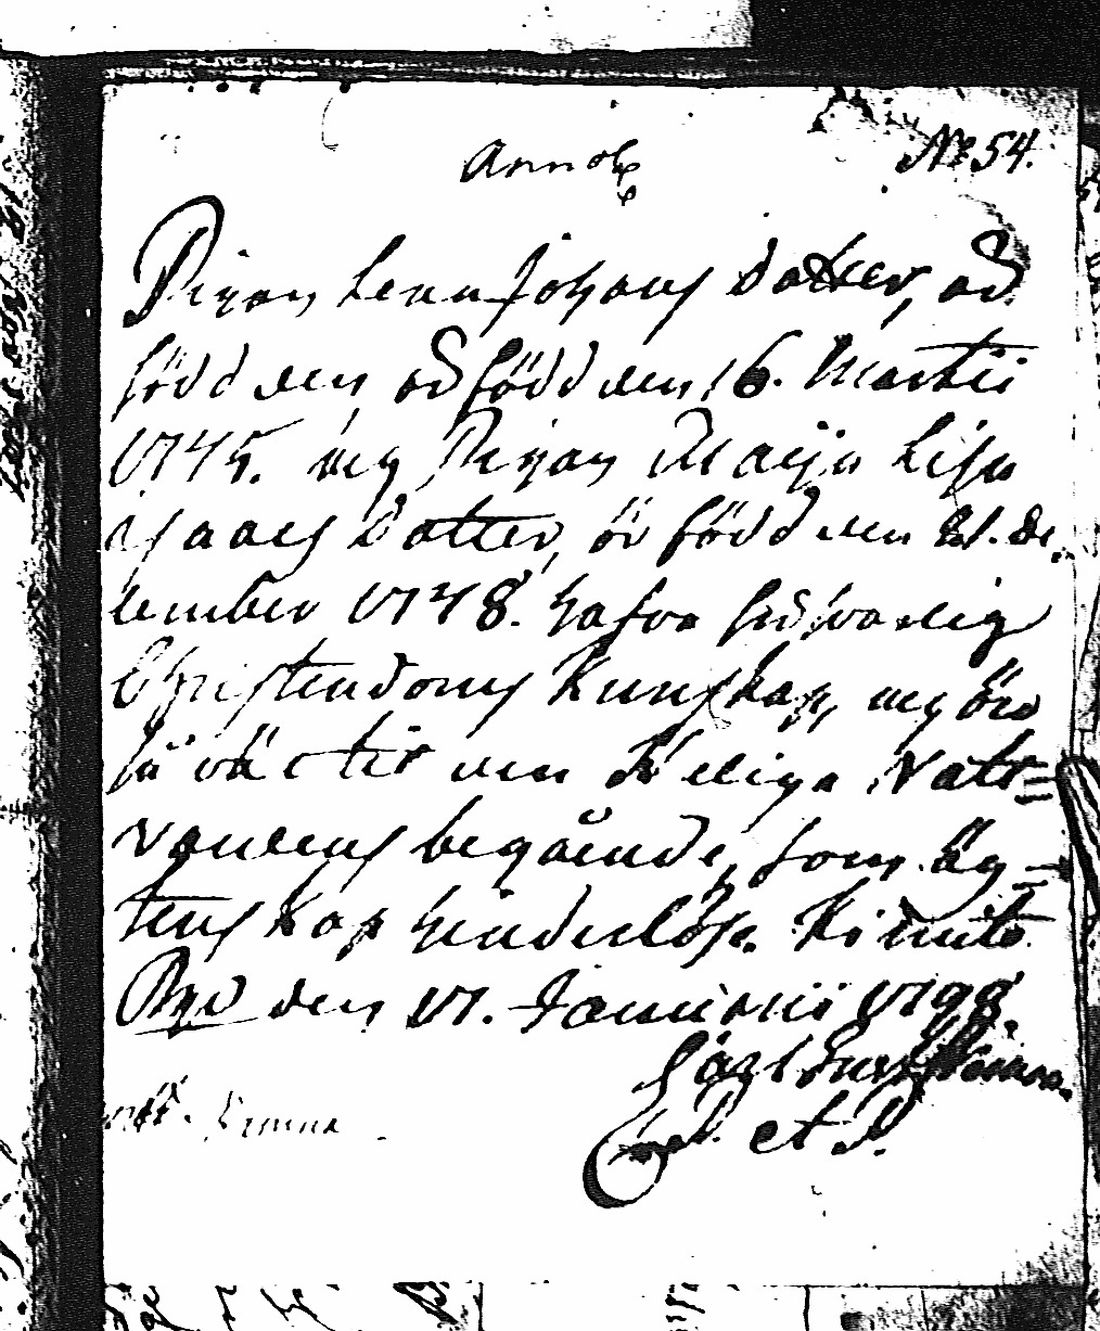 Annot
No 54.
Pigan Lena Johans Dotter, är
född den är född den 16. Martii
1745. och Pigan Maija Lisa
Isaacs Dotter, är född den 21. De
cember 1748. hafva försvarlig
Christendoms Kunskap, och äro
så väl til den Heliga Natt=
vardens begående, som äg=
tenskap hinderlöse. Kimito
Pgd den 17. Januarii 1798.
C. et P.